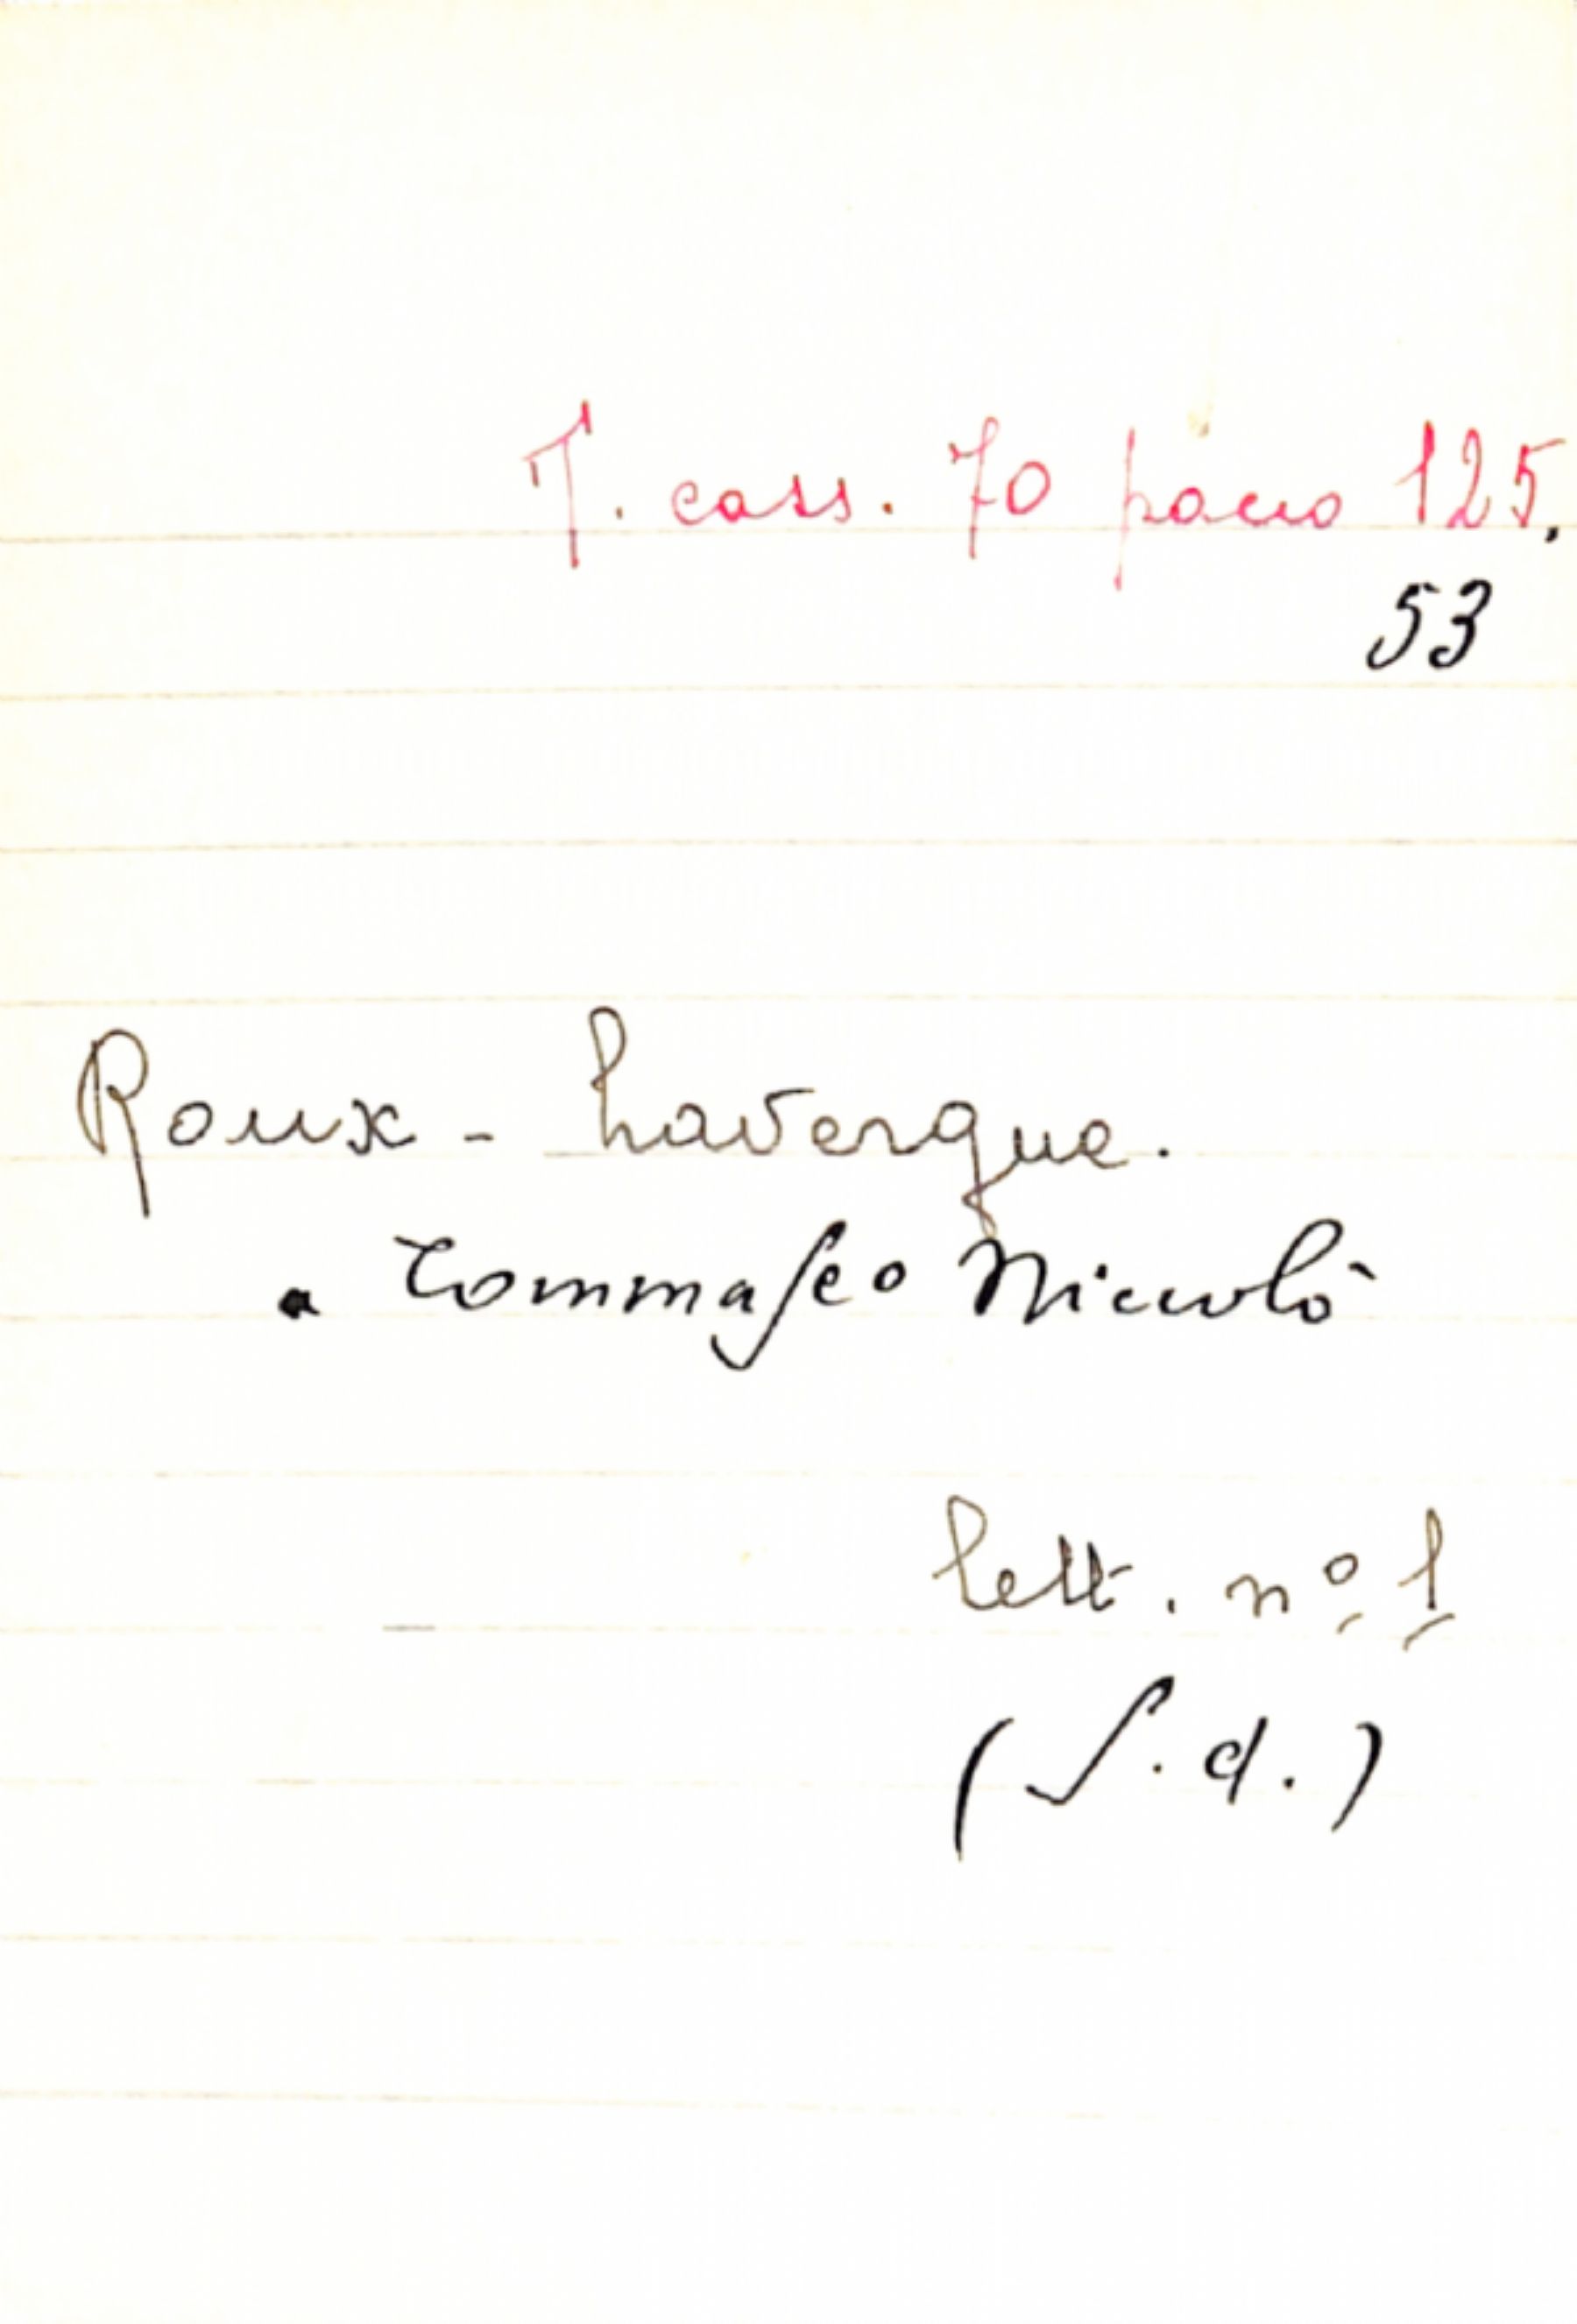 T. cass. 70 pacco 125,
53
Roux - Lavergue.
a Tommaseo Niccolò
lett. nº 1
(S. d.)